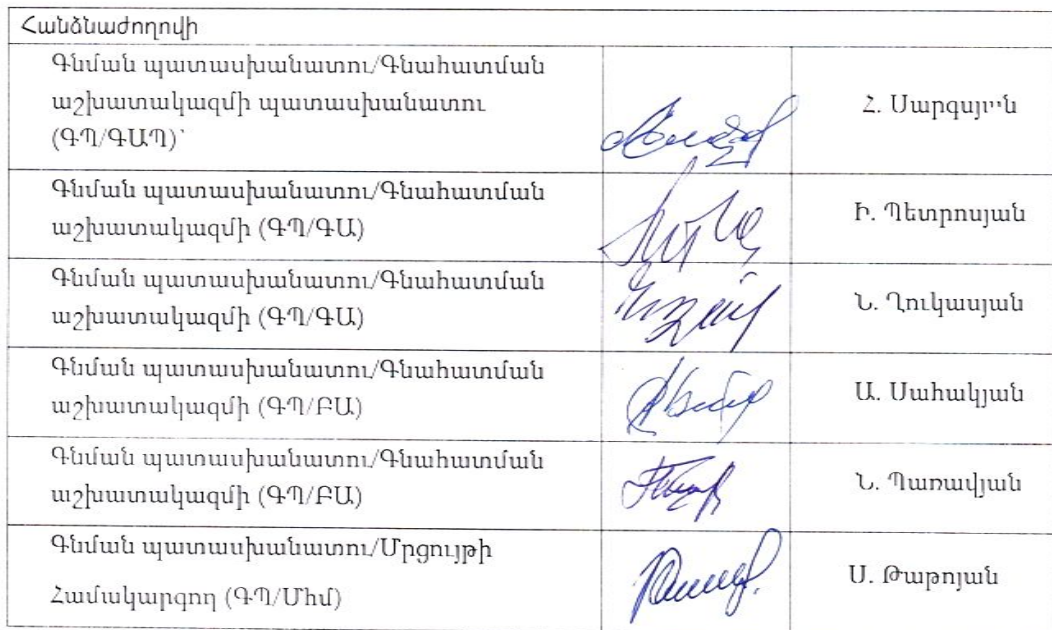 Հանձնաժողովի
Գնման պատասխանատու/Գնահատման
աշխատակազմի պատասխանատու
(ԳՊ/ԳԱՊ)՝
Հ. Սարգսյան
Գնման պատասխանատու/Գնահատման
աշխատակազմի (ԳՊ/ԳԱ)
Ի. Պետրոսյան
Գնման պատասխանատու/Գնահատման
աշխատակազմի (ԳՊ/ԳԱ)
Ն. Ղուկասյան
Գնման պատասխանատու/Գնահատման
աշխատակազմի (ԳՊ/ԲԱ)
Ա. Սահակյան
Գնման պատասխանատու/Գնահատման
աշխատակազմի (ԳՊ/ԲԱ)
Ն. Պառավյան
Գնման պատասխանատու/Մրցույթի
Համակարգող (ԳՊ/Մհմ)
Ս. Թաթոյան